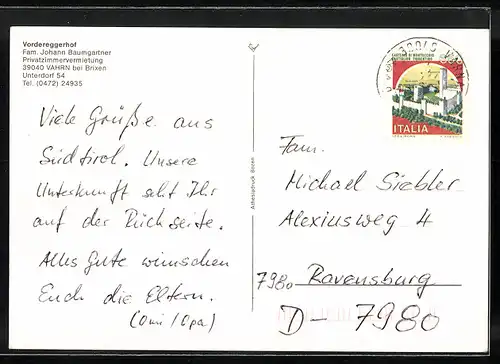 Vordereggerhof
Fam. Johann Baumgartner
Privatzimmervermietung
39040 VAHRN bei Brixen
Unterdorf 54
Tel. (0472) 24935
Viele Grüße aus
Südtirol. Unsere
Unterkunft seht Ihr
auf der Rückseite.
Alles Gute wünschen
Euch die Eltern.
(Omi/Opa)
Athesiadruck Bozen
ITALIA
Fam.
Michael Siebler
Alexiusweg 4
7980 Ravensburg
D-7980